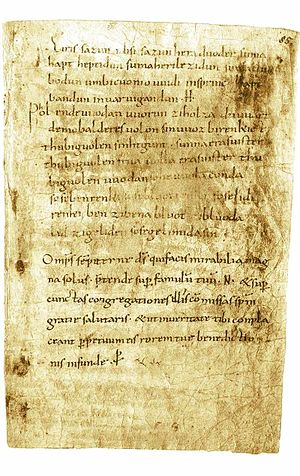 85
Eiris sazun idisi sazun hera duoder suma
hapt heptidun sumaherilezidun sumaclu
bodun umbicuonio uuidi insprinc hapt
bandun inuar uigandun · H ·
Phol ende uuodan uuorun ziholza du uuart
demobalderes uolon sinuuoz birenkict
thubiguolen sinhtgunt · sunna erasuister
thubiguolen friia uolla erasuister thu
biguolen uuodan uuolaconda
sosebenrenki soselidi
renki ben zibena bluot zibluoda
lid zigeliden sosegelimida sin ·
Omps sempiterne ds qui facis mirabilia mag
na solus · ptende sup famulū tuū · N · & sup
cunctas congregationes illis cōmissas spm
gratie salutaris · & ut inueritate tibi compla
ceant ppetuum eis rorem tue benedictio
nis infunde ·